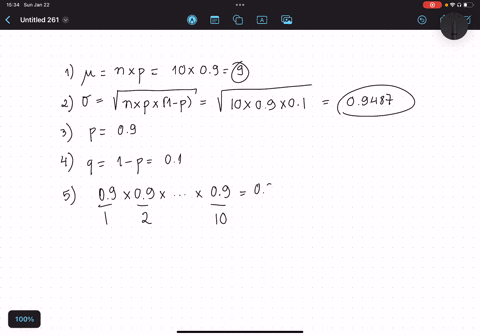 15:34 Sun Jan 22
100%
Untitled 261
1) μ = n×p = 10×0.9 = 9
2) σ = √n×p×(1-p) = √10×0.9×0.1 = 0.9487
3) p = 0.9
4) q = 1-p = 0.1
5) 0.9 × 0.9 × ... × 0.9 = 0.
1 2 10
100%